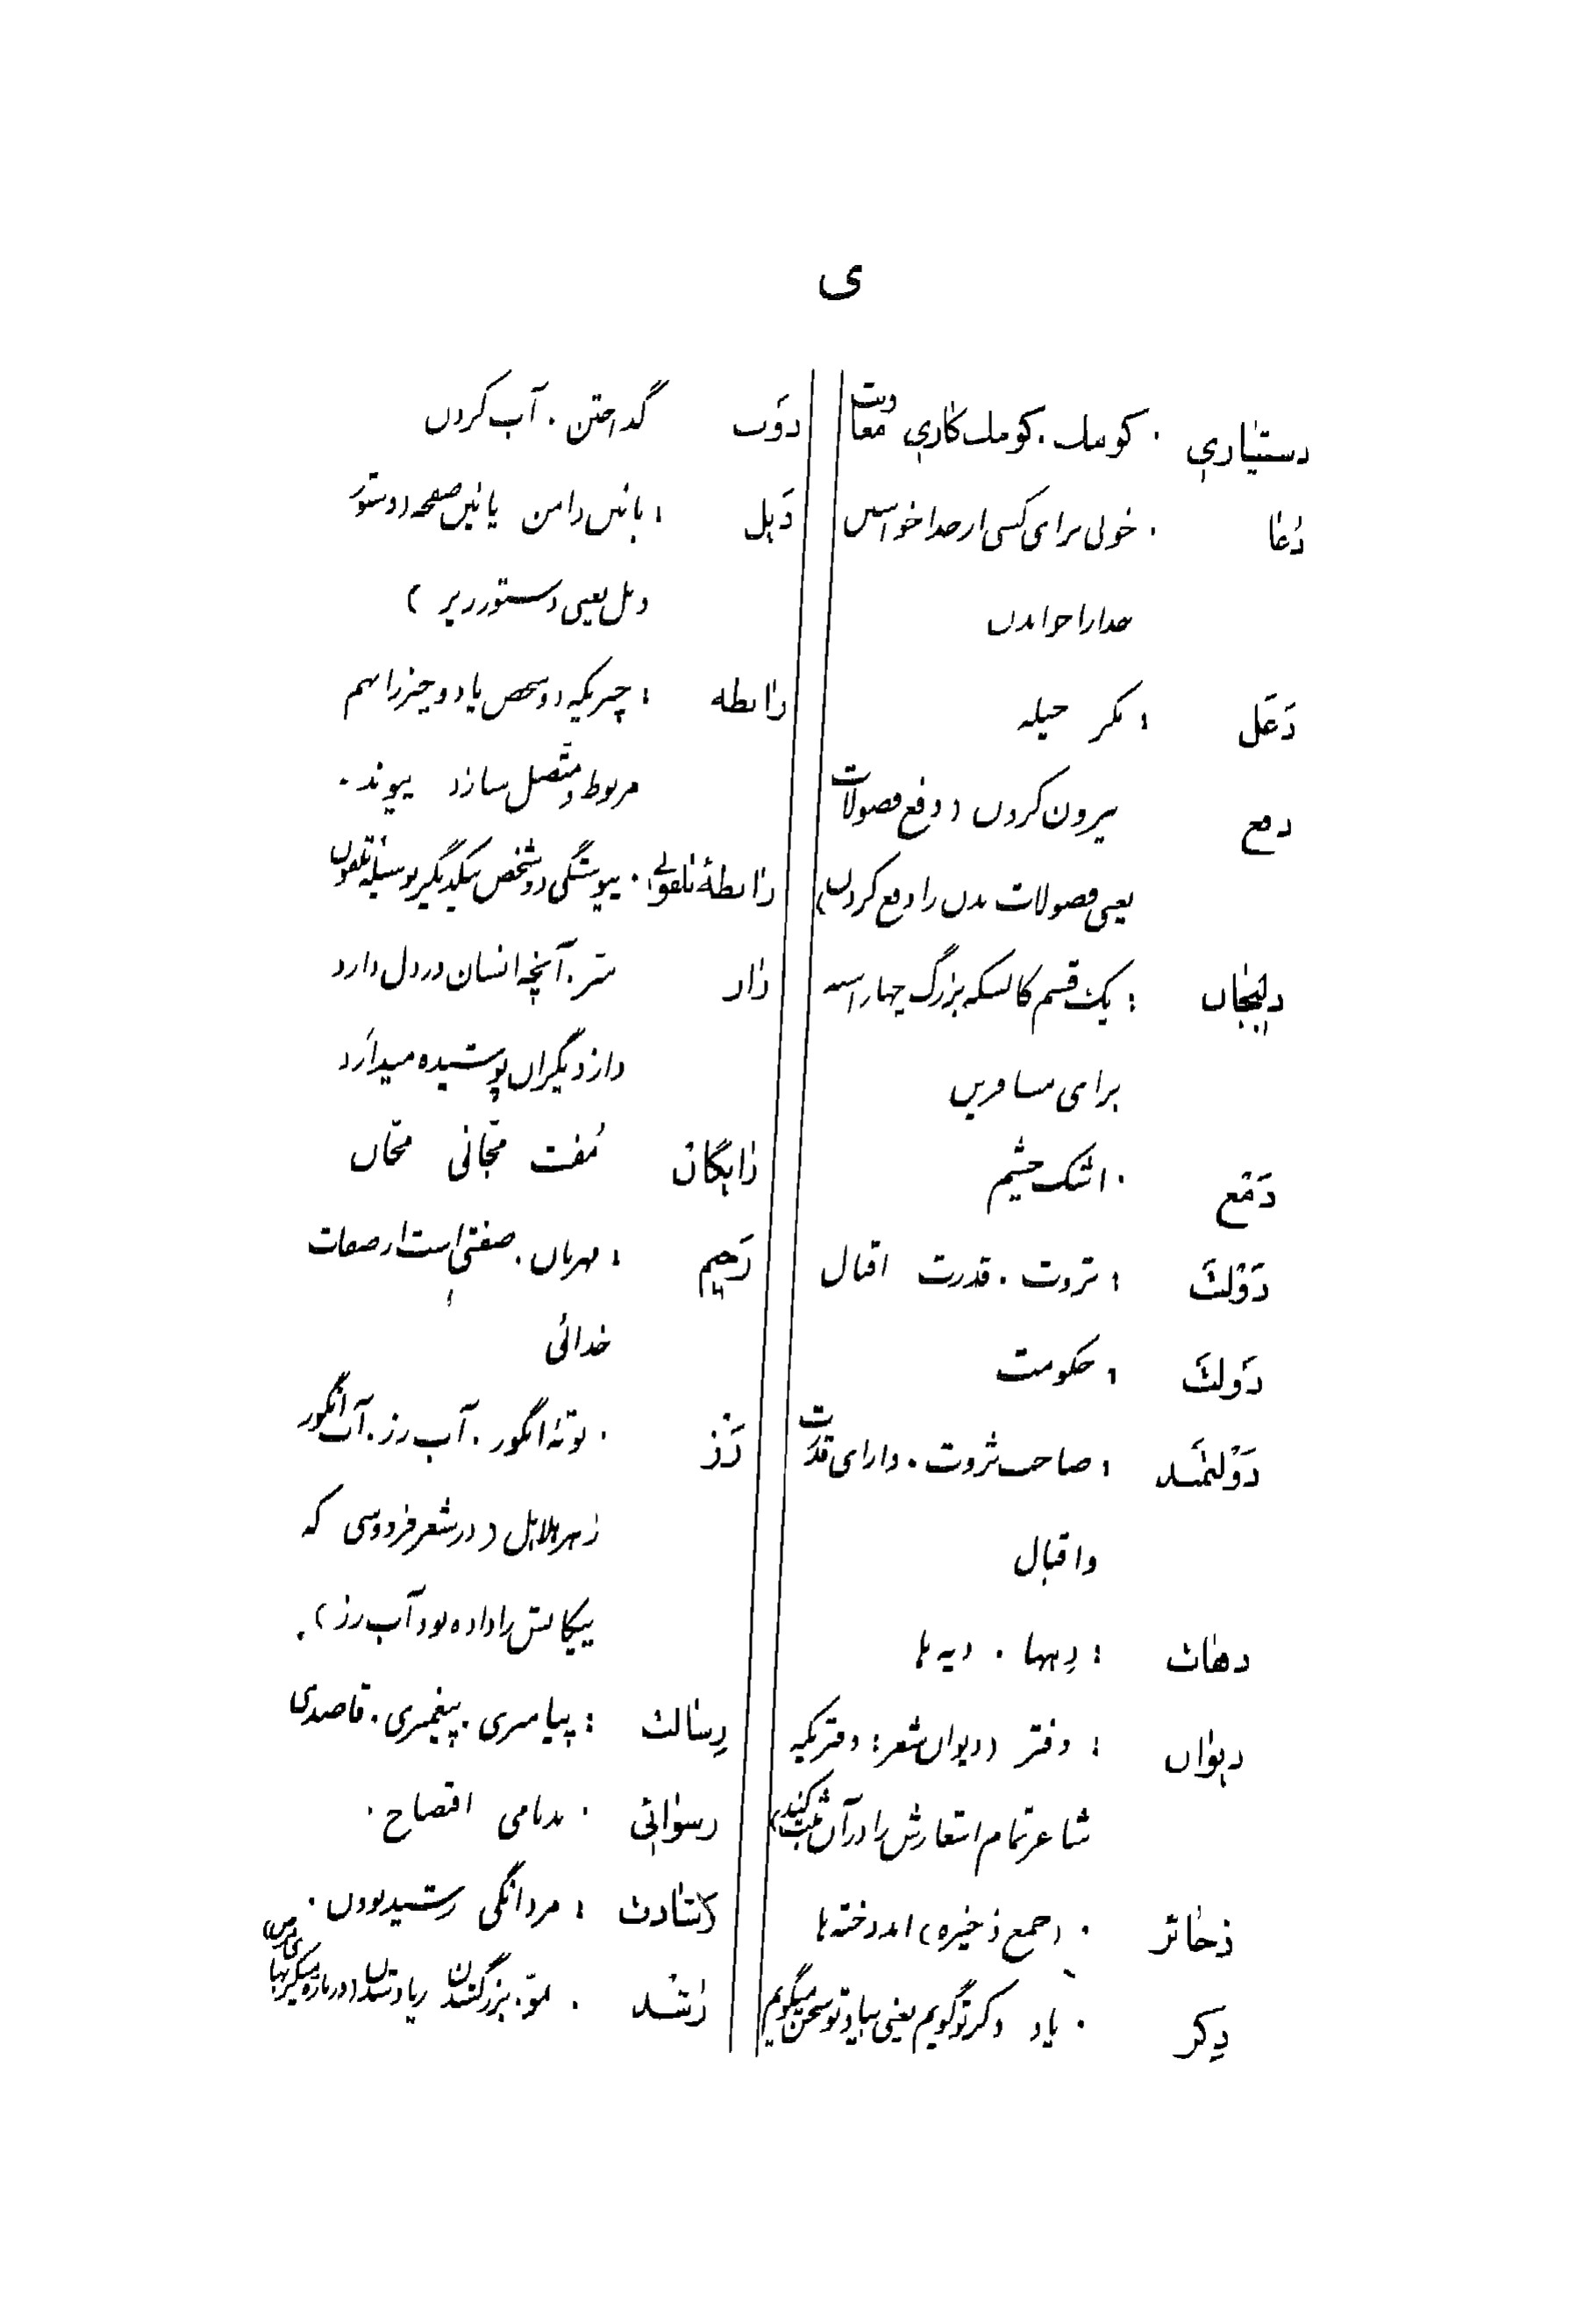 ی
دستیاری : کومک . کومک کاری معاونت
دُعا : خوبی برای کسی از خدا خواستن
خدا را خواندن
دَغَل : مکر حیله
دفع بیرون کردن ( دفع فضولات
یعنی فضولات بدن را دفع کردن )
دلیجان : یک قسم کالسکه بزرگ چهار اسبه
برای مسافرین
دَمْع : اشک چشم
دَوْلَت : ثروت . قدرت اقبال
دَولَت : حکومت
دَوْلتمَند : صاحب ثروت . دارای قدرت
و اقبال
دهات : دِهها . دیه ها
دیوان : دفتر ( دیوان شعر : دفتریکه
شاعر تمام اشعارش را در آن ثبت کند )
ذخائر : ( جمع ذخیره ) اندوخته ها
ذِکر : یاد ذکر تو گویم یعنی بیاد تو سخن میگویم
ذَوب گداختن . آب کردن
ذَیل : پائین دامن پائین صفحه ( دستور
ذیل یعنی دستور زیر )
رابطه : چیزیکه دو شخص یا دو چیز را بهم
مربوط و متّصل سازد پیوند .
رابطهٔ تلفونی : پیوستگی دو شخص بیکدیگر بوسیله تلفون
راز سّر . آنچه انسان در دل دارد
و از دیگران پوشیده میدارَد
رایگان مُفت مجّانی مجّان
رَحیم : مهربان . صفتی است از صفات
خدائی
رَز : بوتهٔ انگور . آب رز . آب انگور
زهر هلاهل ( در شعر فردوسی که
پیکانش را داده بود آب رز ) .
رِسالت : پیامبری . پیغمبری . قاصدی
رسوائی : بدنامی افتضاح .
رَشادت : مردانگی رشید بودن .
رُشد : نموّ . بزرگ شدن زیاد شدن